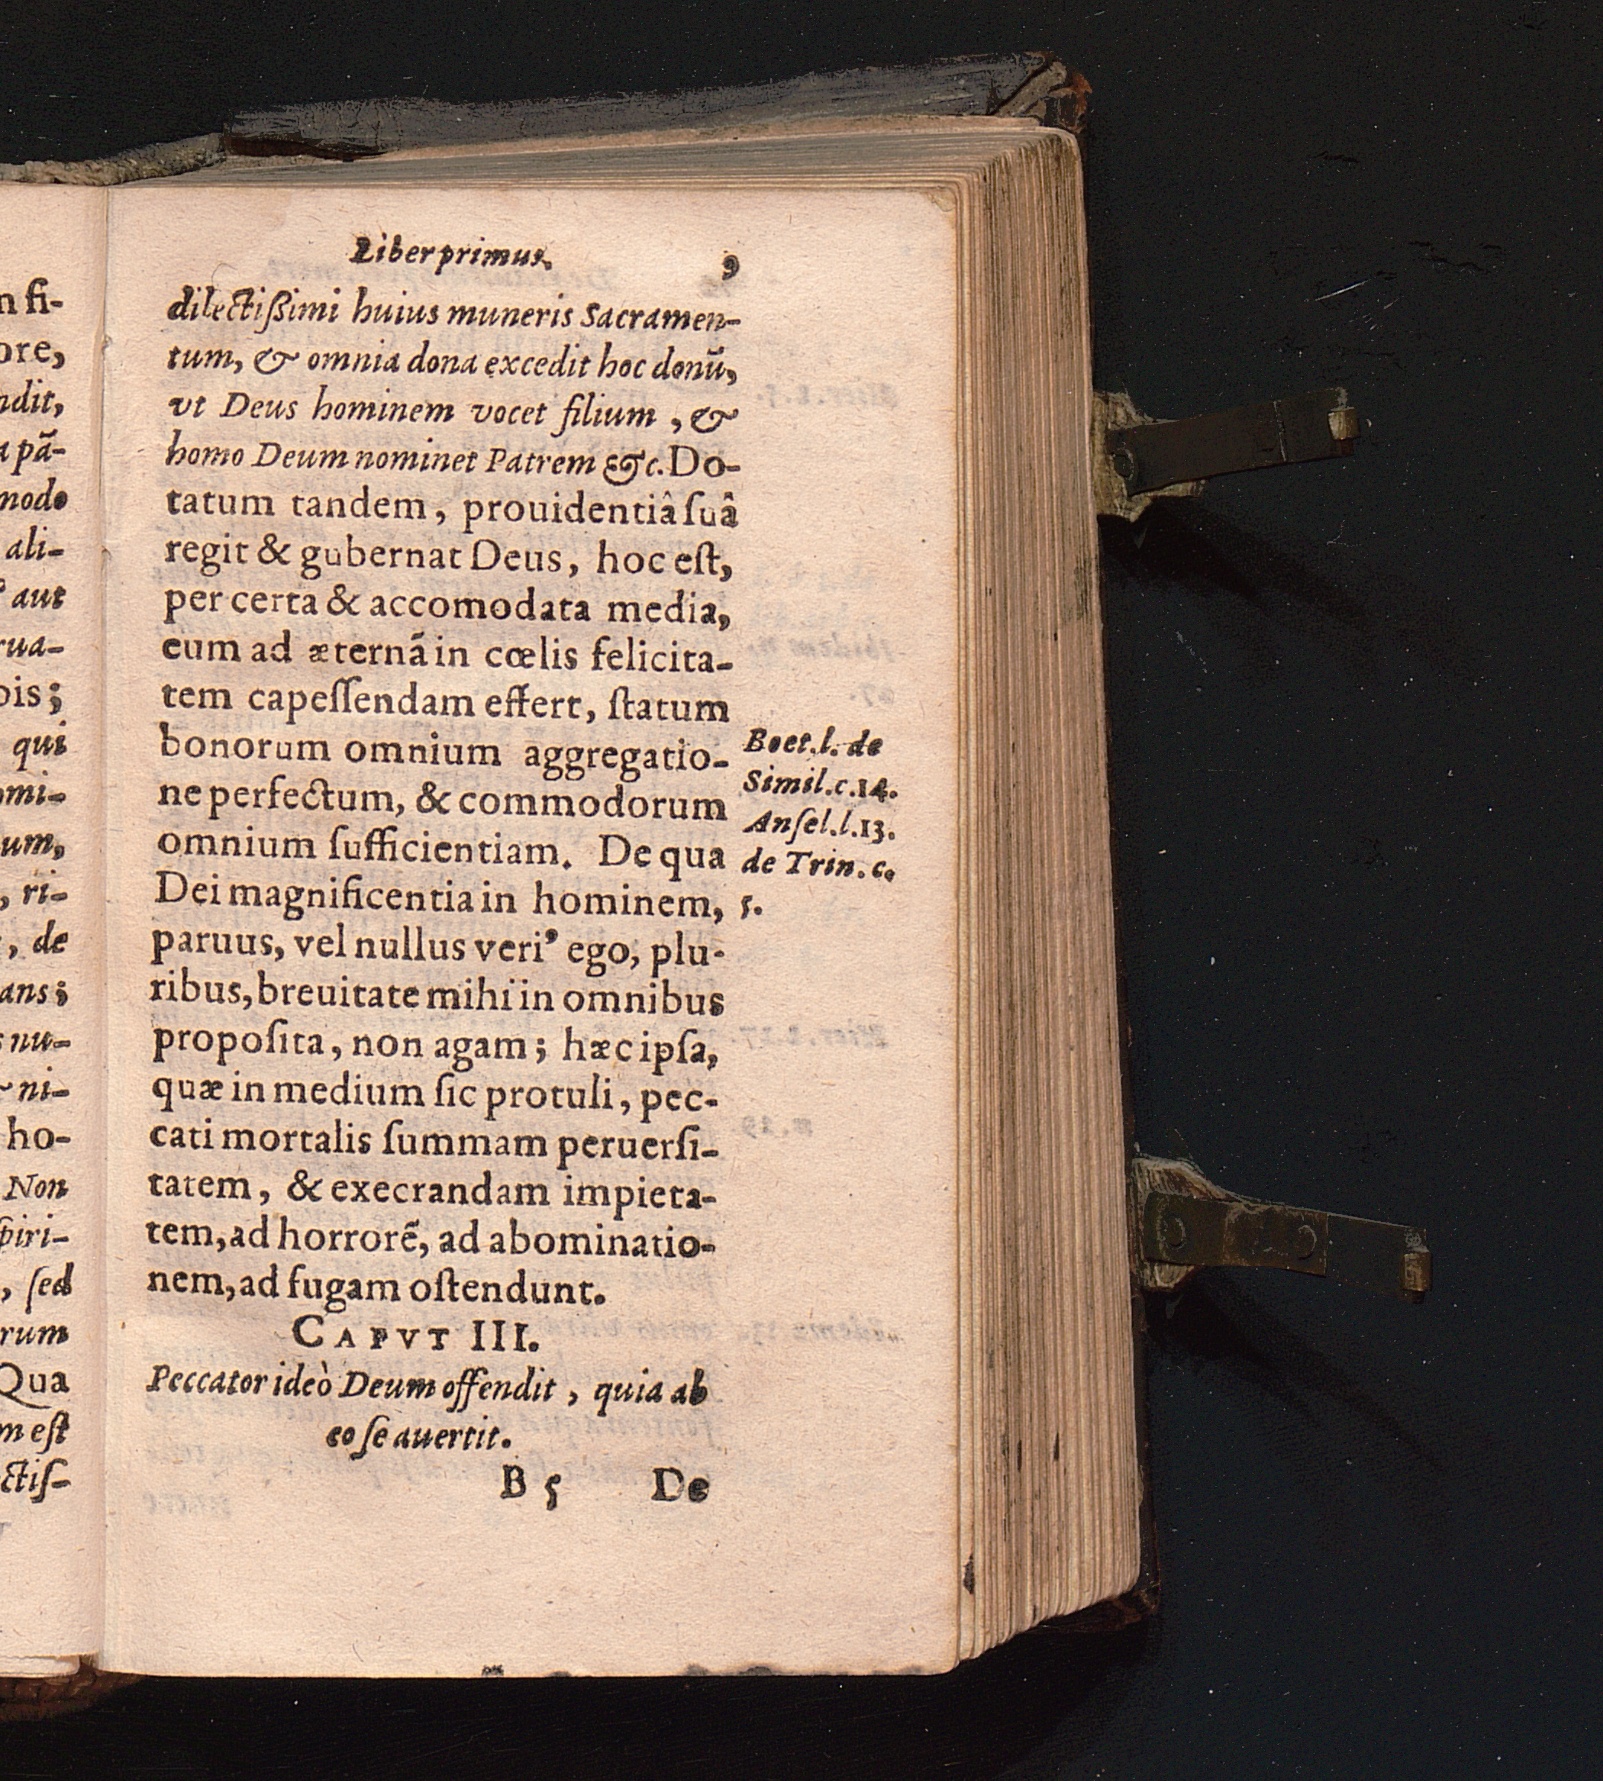 n fi-
ore,
ndit,
a pã-
modo
ali-
aut
rua-
bis;
qui
omi-
um,
, ri-
, de
ans;
nu-
ni-
ho-
Non
ſpiri-
, ſed
rum
Qua
m eſt
ctiſ-
Liber primus. 9
dilectißimi huius muneris Sacramen-
tum, & omnia dona excedit hoc donũ,
vt Deus hominem vocet filium , &
homo Deum nominet Patrem &c. Do-
tatum tandem, prouidentiâ ſuâ
regit & gubernat Deus, hoc eſt,
per certa & accomodata media,
eum ad æternã in cœlis felicita-
tem capeſſendam effert, ſtatum
bonorum omnium aggregatio-
ne perfectum, & commodorum
omnium ſufficientiam. De qua
Dei magnificentia in hominem,
paruus, vel nullus veri’ ego, plu-
ribus, breuitate mihi in omnibus
propoſita, non agam; hæc ipſa,
quæ in medium ſic protuli, pec-
cati mortalis ſummam peruerſi-
tatem, & execrandam impieta-
tem, ad horrorẽ, ad abominatio-
nem, ad fugam oſtendunt.
Boet. l. de
Simil. c. 14.
Anſel. l. 13.
de Trin. c.
5.
CAPVT III.
Peccator ideò Deum offendit , quia ab
eo ſe auertit.
B 5 De